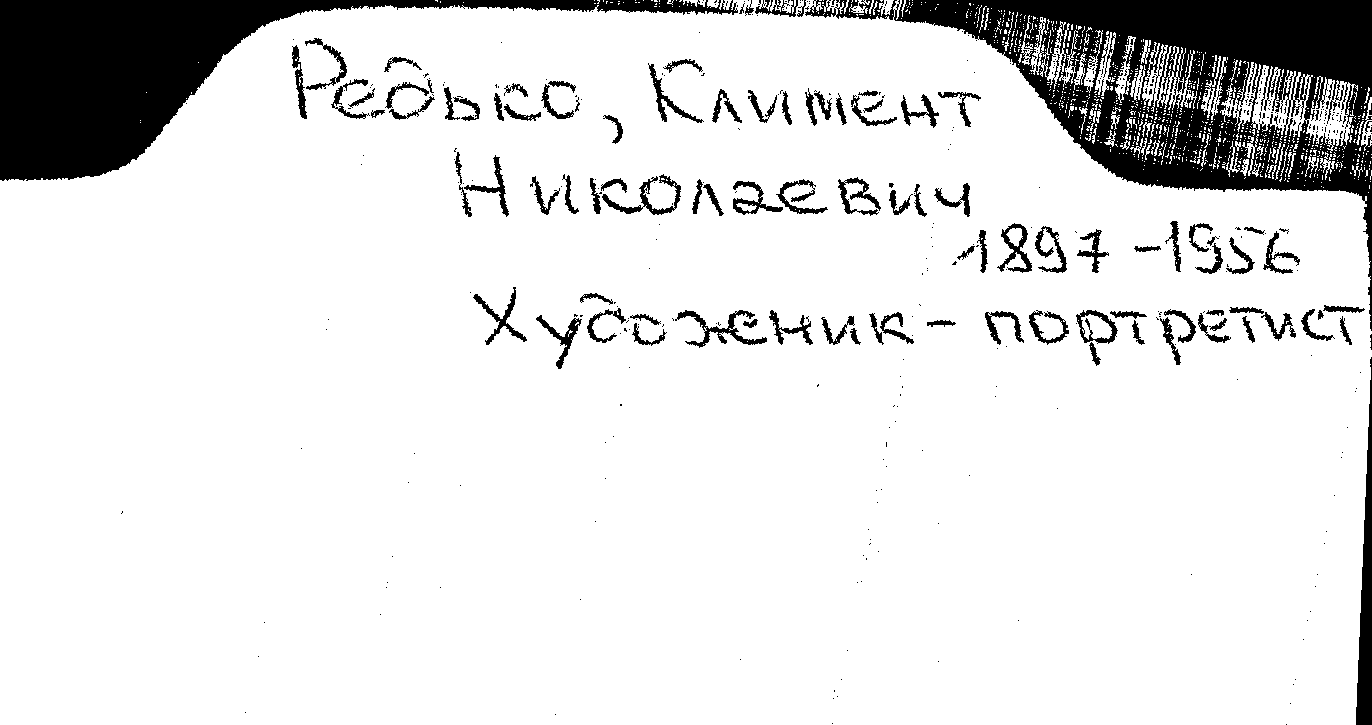 Редько, Климент
Николаевич
1897-1956
Художник - портретист